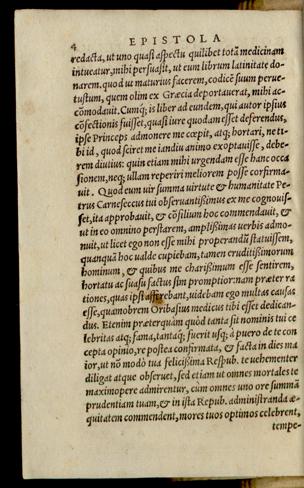 4 EPISTOLA
redacta, ut uno quasi aspectu quilibet totā medicinam
intueatur, mihi persuasit, ut eum librum latinitate do-
narem. quod uu maturius facerem, codicē suum perue-
tustum, quem olim ex Græcia deportauerat, mihi ac-
cōmodauit. Cumq́; is liber ad eundem, qui autor ipsius
cōfectionis fuisset, quasi iure quodam esset deferendus,
ipse Princeps admonere me cœpit, atq; hortari, ne ti-
bi id, quod sciret me iandiu animo exoptauisse, debe-
rem diutius: quin etiam mihi urgendam esse hanc occa
sionem, neq; ullam reperiri meliorem posse confirma-
uit. Quod eum uir summa uirtute & humanitate Pe-
trus Carneseccus tui obseruantißimus ex me cognouis-
set, ita approbauit, & cōsilium hoc commendauit, &
ut in eo omnino perstarem, amplißimis uerbis admo-
nuit, ut licet ego non esse mihi properandū statuissem,
quanquā hoc ualde cupiebam, tamen eruditißimorum
hominum, & quibus me charißimum esse sentirem,
hortatu ac suasu factus sim promptior: nam præter ra
tiones, quas ipsi afferebant, uidebam ego multas causas
esse, quamobrem Oribasius medicus tibi esset dedican-
dus. Etenim præterquàm quòd tanta sit nominis tui ce
lebritas atq; fama, tantaq́; fuerit usq; à puero de te con
cepta opinio, re postea confirmata, & facta in dies ma
ior, ut nō modò tua felicißima Respub. te uehementer
diligat atque obseruet, sed etiam ut omnes mortales te
maximopere admirentur, cùm omnes uno ore summā
prudentiam tuam, & in ista Repub. administranda æ-
quitatem commendent, mores tuos optimos celebrent,
tempe-